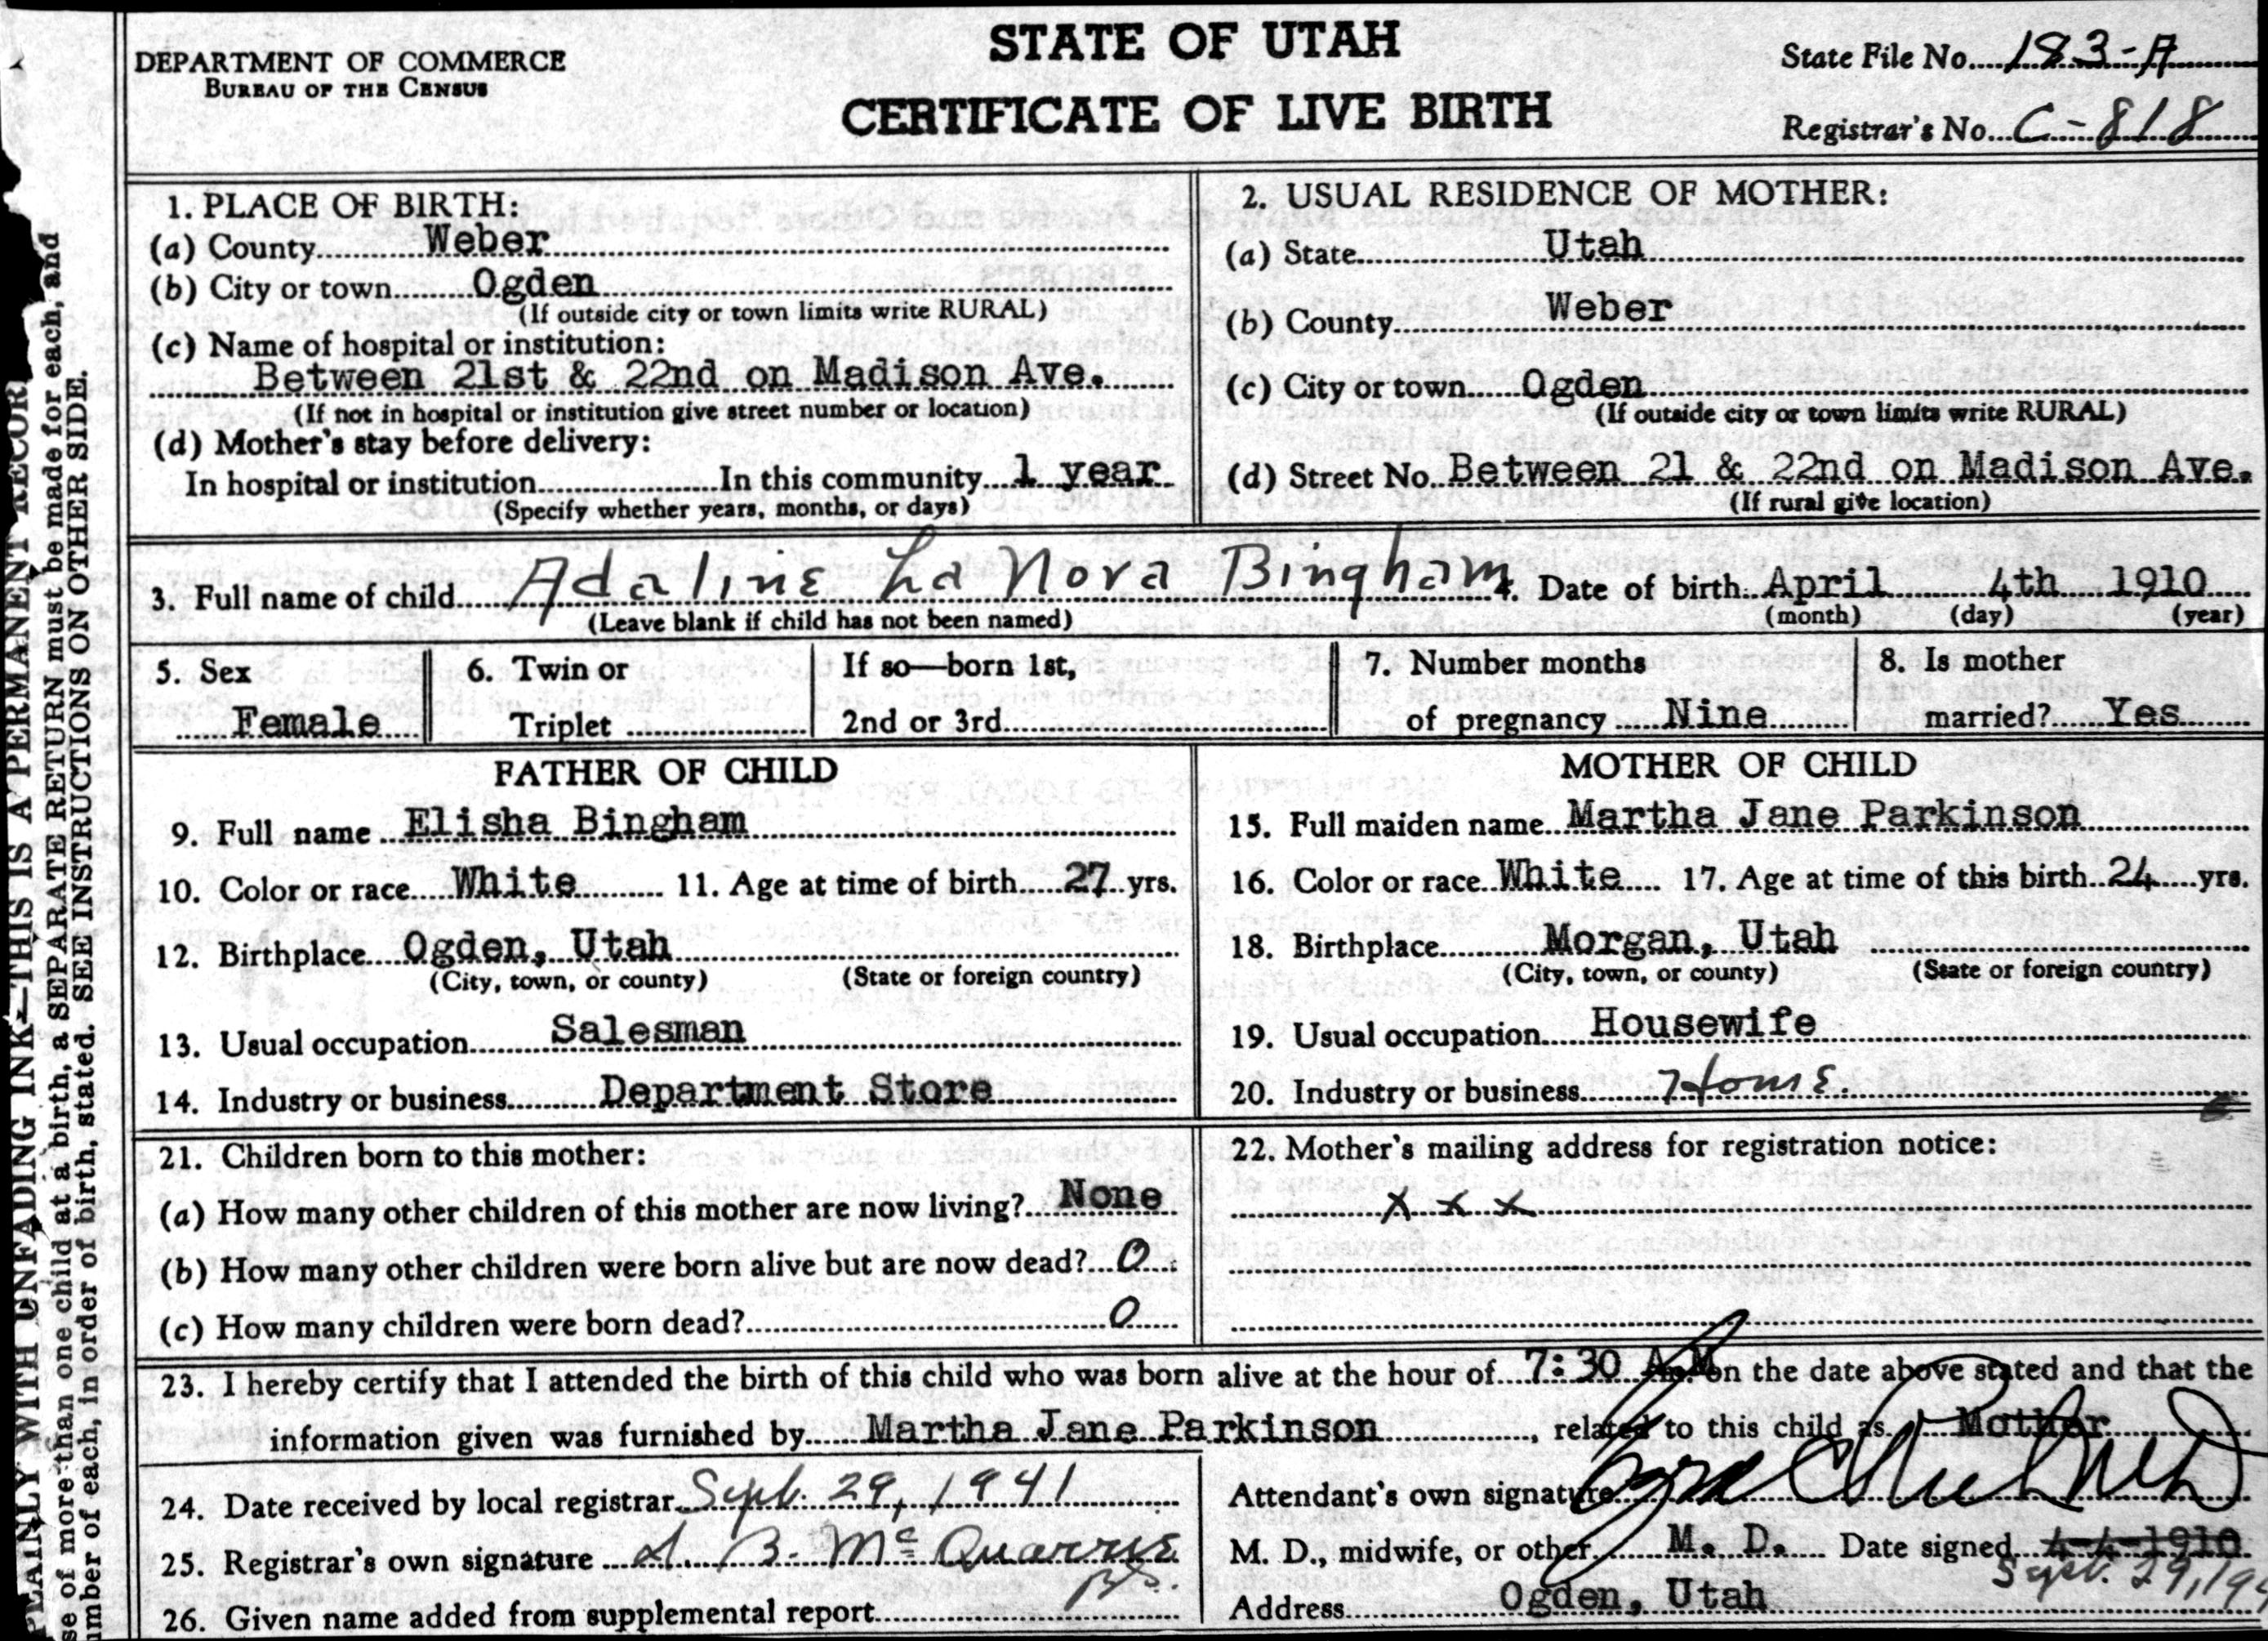 DEPARTMENT OF COMMERCE
BUREAU OF THE CENSUS
STATE OF UTAH
CERTIFICATE OF LIVE BIRTH
State File No. 183-A
Registrar's No. C-818
1. PLACE OF BIRTH:
(a) County Weber
(b) City or town Ogden
(If outside city or town limits write RURAL)
(c) Name of hospital or institution:
Between 21st & 22nd on Madison Ave.
(If not in hospital or institution give street number or location)
(d) Mother's stay before delivery:
In hospital or institution In this community 1 year
(Specify whether years, months, or days)
2. USUAL RESIDENCE OF MOTHER:
(a) State Utah
(b) County Weber
(c) City or town Ogden
(If outside city or town limits write RURAL)
(d) Street No. Between 21 & 22nd on Madison Ave.
(If rural give location)
3. Full name of child Adaline La Nora Bingham 4. Date of birth April 4th 1910
(Leave blank if child has not been named) (month) (day) (year)
5. Sex
Female
6. Twin or
Triplet
If so—born 1st,
2nd or 3rd
7. Number months
of pregnancy Nine
8. Is mother
married? Yes
FATHER OF CHILD
9. Full name Elisha Bingham
10. Color or race White 11. Age at time of birth 27 yrs.
12. Birthplace Ogden, Utah
(City, town, or county) (State or foreign country)
13. Usual occupation Salesman
14. Industry or business Department Store
MOTHER OF CHILD
15. Full maiden name Martha Jane Parkinson
16. Color or race White 17. Age at time of this birth 24 yrs.
18. Birthplace Morgan, Utah
(City, town, or county) (State or foreign country)
19. Usual occupation Housewife
20. Industry or business Home.
21. Children born to this mother:
(a) How many other children of this mother are now living? None
(b) How many other children were born alive but are now dead? 0
(c) How many children were born dead? 0
22. Mother's mailing address for registration notice:
x x x
23. I hereby certify that I attended the birth of this child who was born alive at the hour of 7:30 A.M. on the date above stated and that the
information given was furnished by Martha Jane Parkinson, related to this child as Mother
24. Date received by local registrar Sept. 29, 1941
25. Registrar's own signature B. McQuarrie
26. Given name added from supplemental report
Attendant's own signature
M. D., midwife, or other M. D. Date signed 4-4-1910
Sept. 29, 194
Address Ogden, Utah
PLAINLY WITH UNFADING INK—THIS IS A PERMANENT RECOR
se of more than one child at a birth, a SEPARATE RETURN must be made for each, and
umber of each, in order of birth, stated. SEE INSTRUCTIONS ON OTHER SIDE.